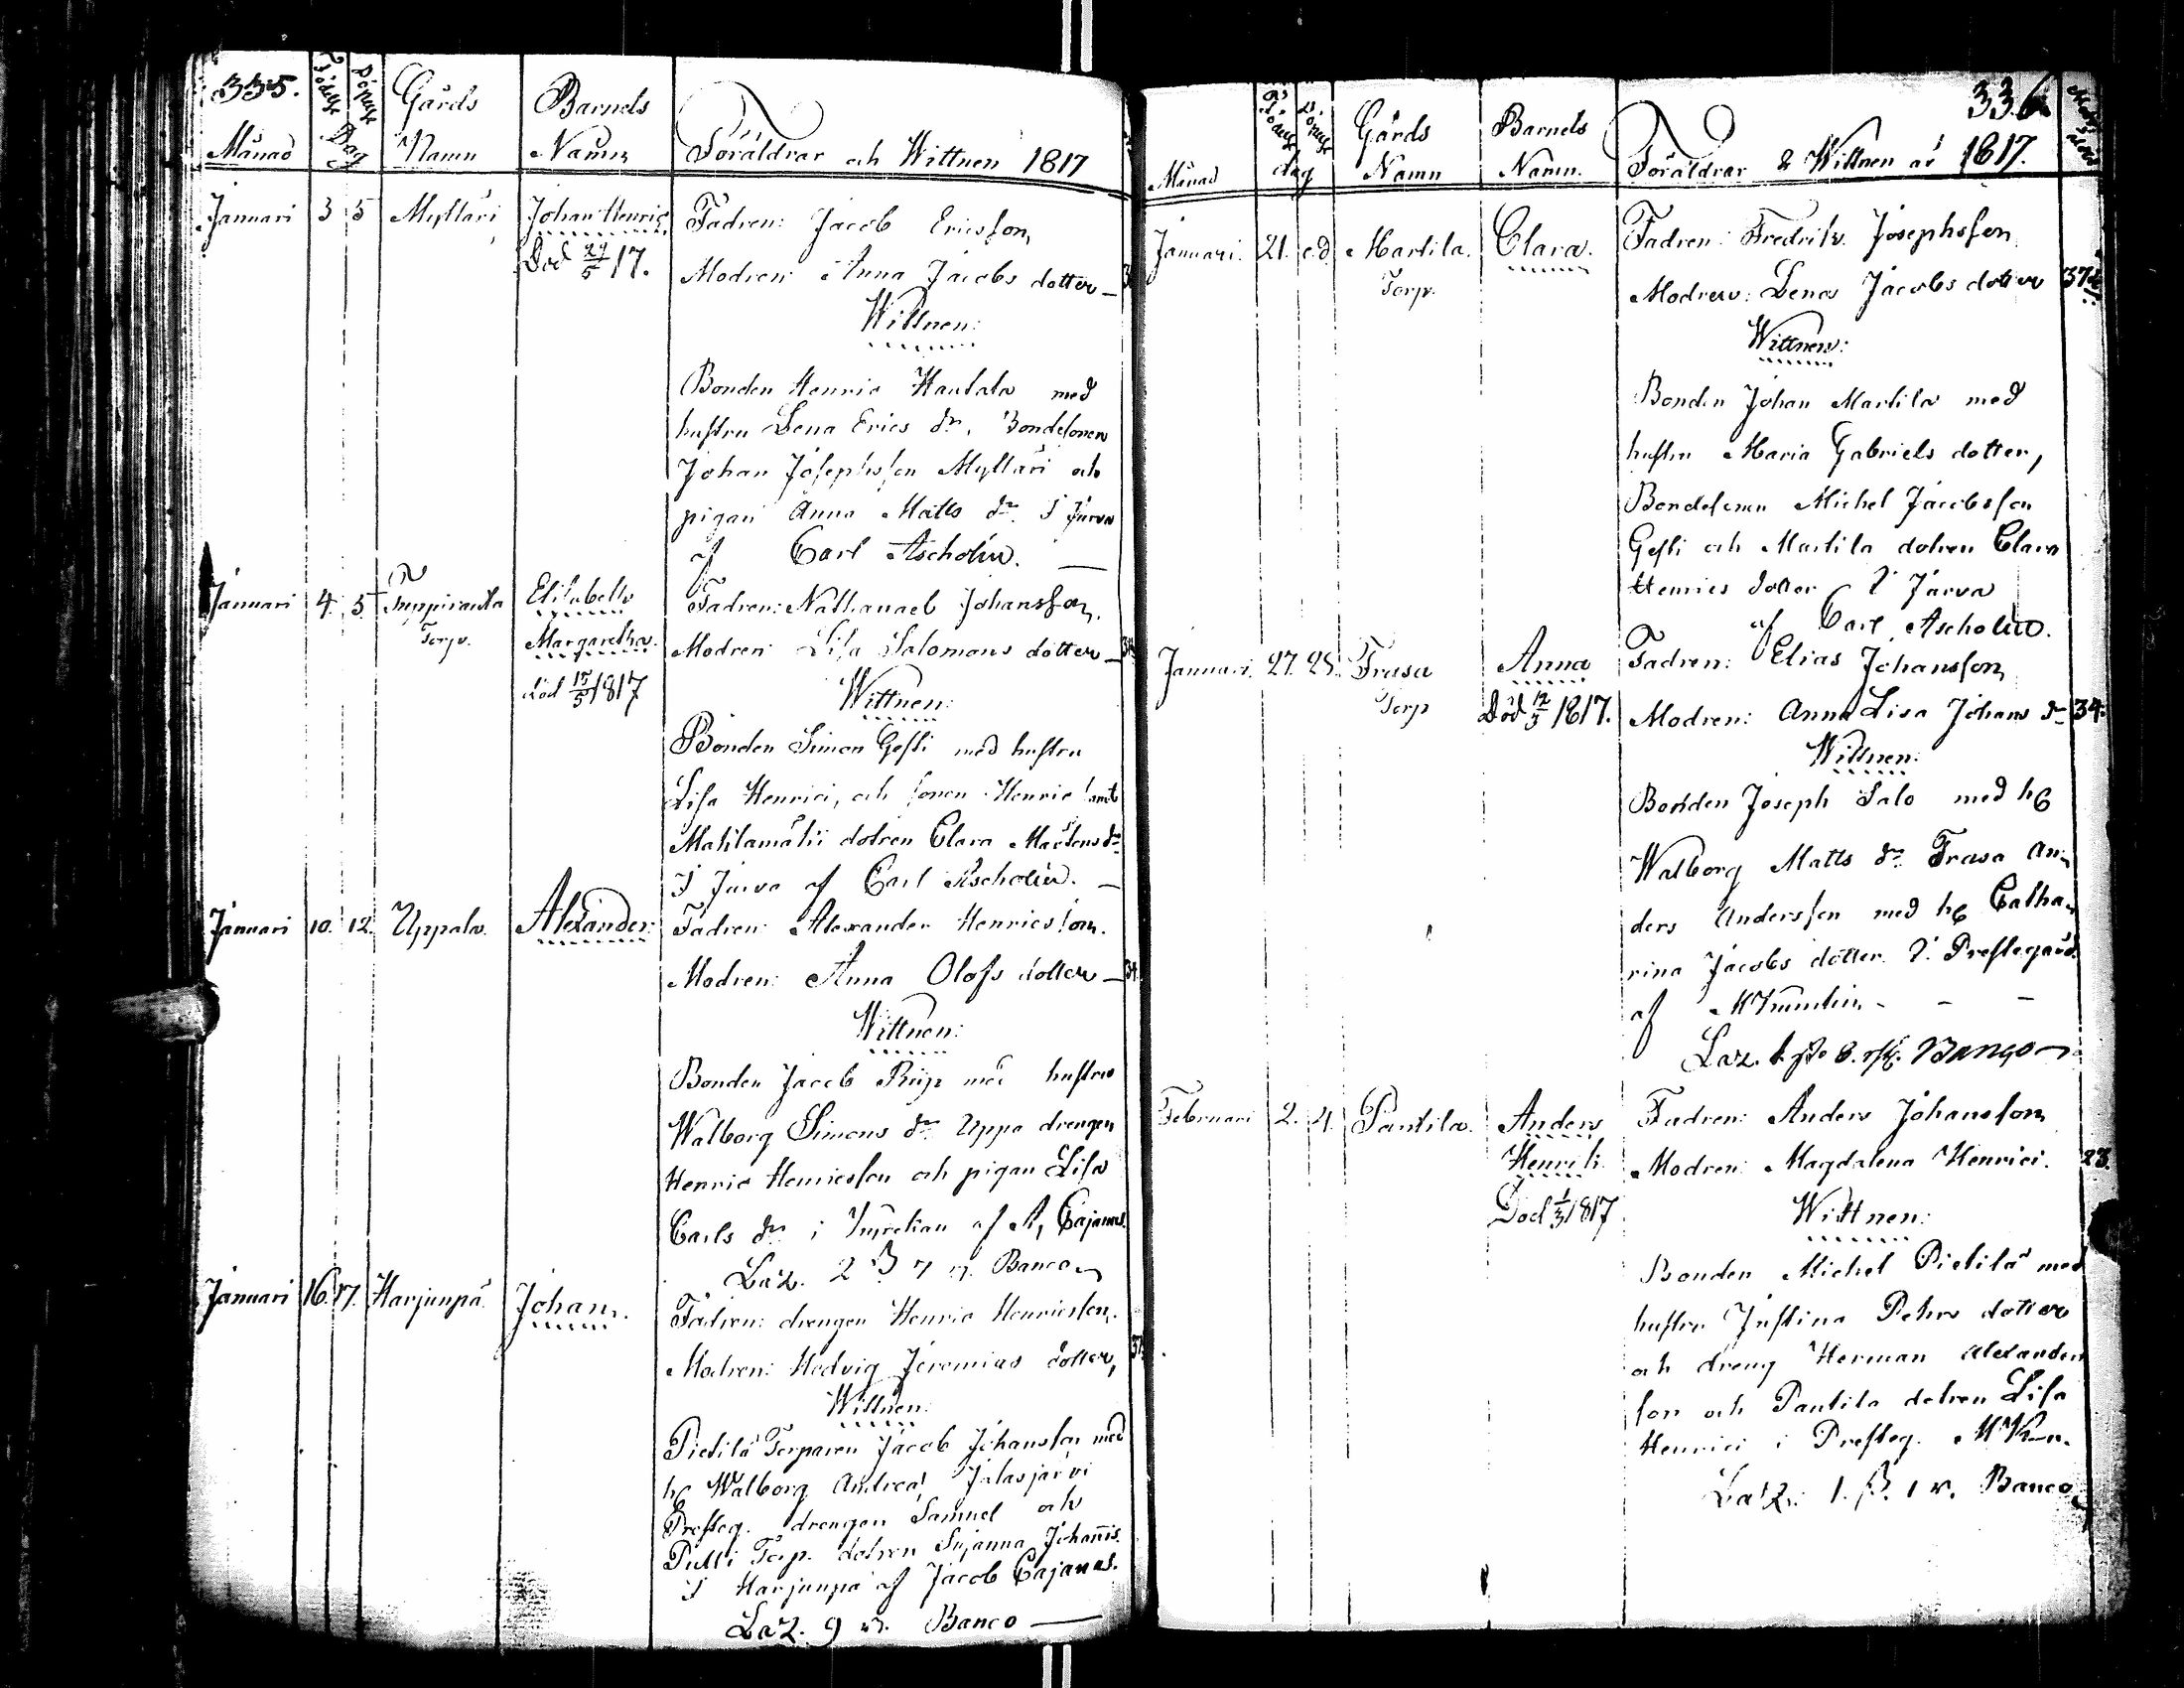 335.
Månad
Födelse Döpelse Dag
Gårds Namn
Barnets Namn
Föräldrar och Wittnen 1817
Januari 3 5 Mylläri Johan Henric Fadren: Jacob Ericsson
Död 24/5 17. Modren: Anna Jacobs dotter —
Wittnen:
Bonden Henric Hautala med
hustru Lena Erics dr, Bondesonen
Johan Josephsson Mylläri och
pigan Anna Matts dr. I Jurva
af Carl Ascholin. —
Januari 4. 5 Elisabeth Fadren: Nathanael Johansson
Torp. Margaretha. Modren: Lisa Salomons dotter —
död 15/5 1817 Wittnen:
Bonden Simon Gesti med hustru
Lisa Henrici, och sonen Henric samt
Mahlamäki dotren Clara Mårtens dr
I Jurva af Carl Ascholin. —
Januari 10. 12. Uppala. Alexander. Fadren: Alexander Henricsson.
Modren: Anna Olofs dotter — 34.
Wittnen:
Bonden Jacob med hustru
Walborg Simons dr. Uppa drengen
Henric Henricsson och pigan Lisa
Carls dr i af A, Cajanus.
Laz. 2 β Banco
Januari 16. 17. Harjunpä. Johan. Fadren: drengen Henric Henricsson.
Modren: Hedvig Jeremias dotter,
Wittnen:
Pietilä Torparen Jacob Johansson med
h Walborg Andreæ Jalasjärvi
Presteg. drengen Samuel och
Torp. dotren Susanna Johannis.
I Harjunpä af Jacob Cajanus.
Laz. 9 Banco —
336
Månad
Födelse Döpelse dag
Gårds Namn
Barnets Namn.
Föräldrar & Wittnen år 1817.
Januari. 21. e.d. Martila. Clara. Fadren: Fredrik Josephsson
Torp. Modren: Lena Jacobs dotter 37
Wittnen:
Bonden Johan Martila med
hustru Maria Gabriels dotter,
Bondesonen Michel Jacobsson
Gesti och Martila dotren Clara
Henrics dotter I Jurva
af Carl Ascholin.
Januari. 27. 28. Frusa Anna Fadren: Elias Johansson
Torp Död 12/5 1817. Modren: Anna Lisa Johans dr 34.
Wittnen:
Bonden Joseph Salo med h
Walborg Matts dr. Frusa An-
ders Andersson med h Catha-
rina Jacobs dotter. I Prestegård
af
Laz. Banco
Februari 2. 4. Pantila. Anders Fadren: Anders Johansson
Henrik Modren: Magdalena Henrici. 23.
Död 1/3 1817 Wittnen:
Bonden Michel Pietilä med
hustru Justina Pehrs dotter
och dreng Herman Alexanders
son och Pantila dotren Lisa
Henrici i Presteg.
Laz. 1. β. 1 r. Banco